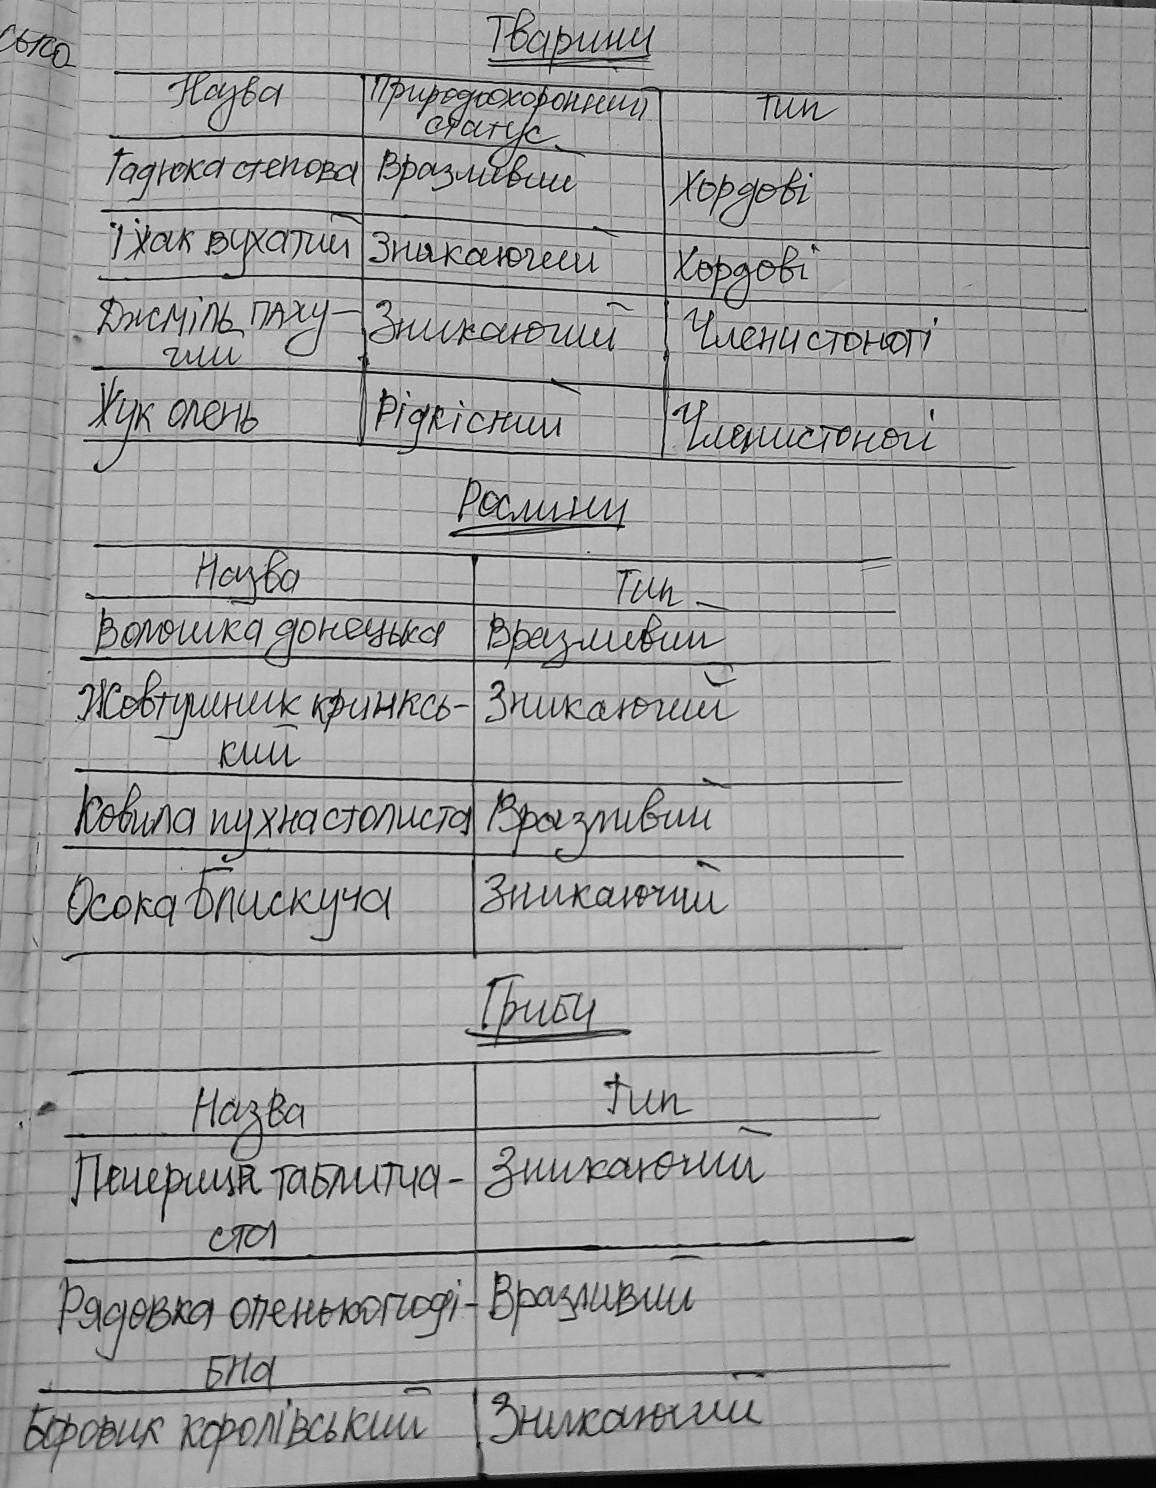 Тварини
Назва Природоохоронний Тип
статус
Гадюка степова Вразливий Хордові
Їжак вухатий Зникаючий Хордові
Джміль паху- Зникаючий Членистоногі
чий
Жук олень Рідкісний Членистоногі
Рослини
Назва Тип
Волошка донецька Вразливий
Жовтушник кринксь- Зникаючий
кий
Ковила пухнастолиста Вразливий
Осока блискуча Зникаючий
Гриби
Назва Тип
Печериця таблитча- Зникаючий
ста
Рядовка опенькоподі- Вразливий
бна
Боровик королівський Зникаючий